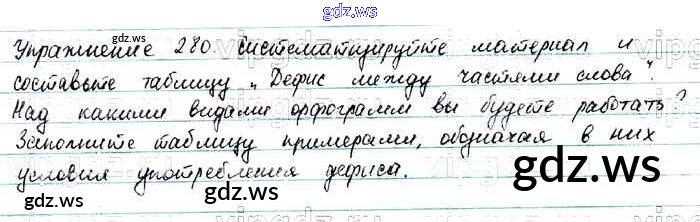 gdz.ws
Упражнение 280. Систематизируйте материал и
составьте таблицу „Дефис между частями слова".
Над какими видами орфограмм вы будете работать?
Заполните таблицу примерами, обозначая в них
условия употребления дефиса.
gdz.ws
gdz.ws
gdz.ws